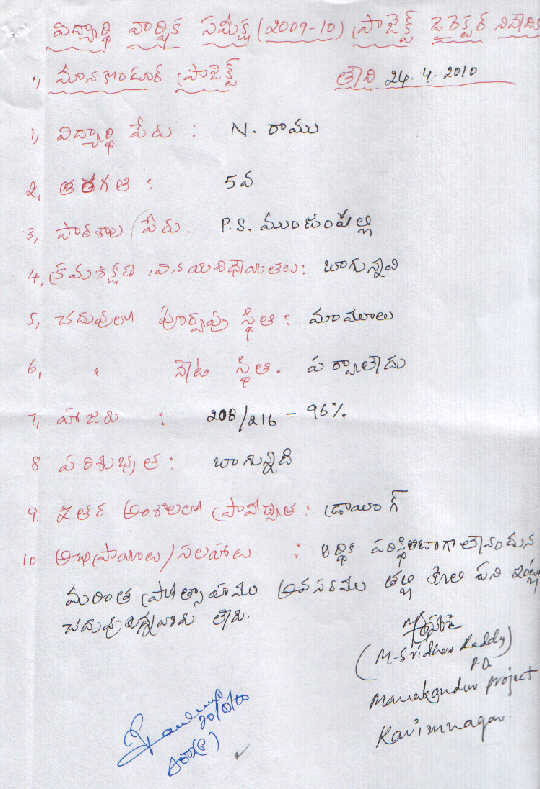 విద్యార్థి వార్షిక సమీక్ష (2009-10) ప్రాజెక్ట్ డైరెక్టర్ నివేదిక
మానకొండూర్ ప్రాజెక్ట్ తేది 24.4.2010
1, విద్యార్థి పేరు : N. రాము
2, తరగతి : 5వ
3, పాఠశాల పేరు P.S. ముంజంపల్లి
4, క్రమశిక్షణ, వినయవిధేయతలు: బాగున్నవి
5, చదువులో పూర్వపు స్థితి : మామూలు
6, " నేటి స్థితి. పర్వాలేదు
7, హాజరు : 208/216 - 96%
8 పరిశుభ్రత : బాగున్నది
9 ఇతర అంశాలలో ప్రావీణ్యత : డ్రాయింగ్
10 అభిప్రాయాలు/సలహాలు : ఆర్థిక పరిస్థితి బాగా లేనందున
మరింత ప్రోత్సాహము అవసరము తల్లి కూలి పని
చదువుకున్నవారు లేరు.
(M. Sridhar Reddy)
P.D
Manakondur project
Karimnagar